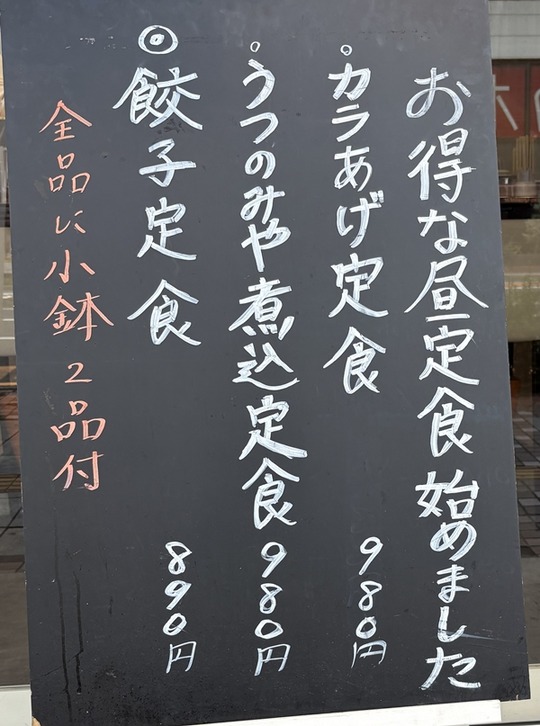 お得な昼定食始めました
○カラあげ定食 980円
○うつのみや煮込定食 980円
◎餃子定食 890円
全品に小鉢2品付
六